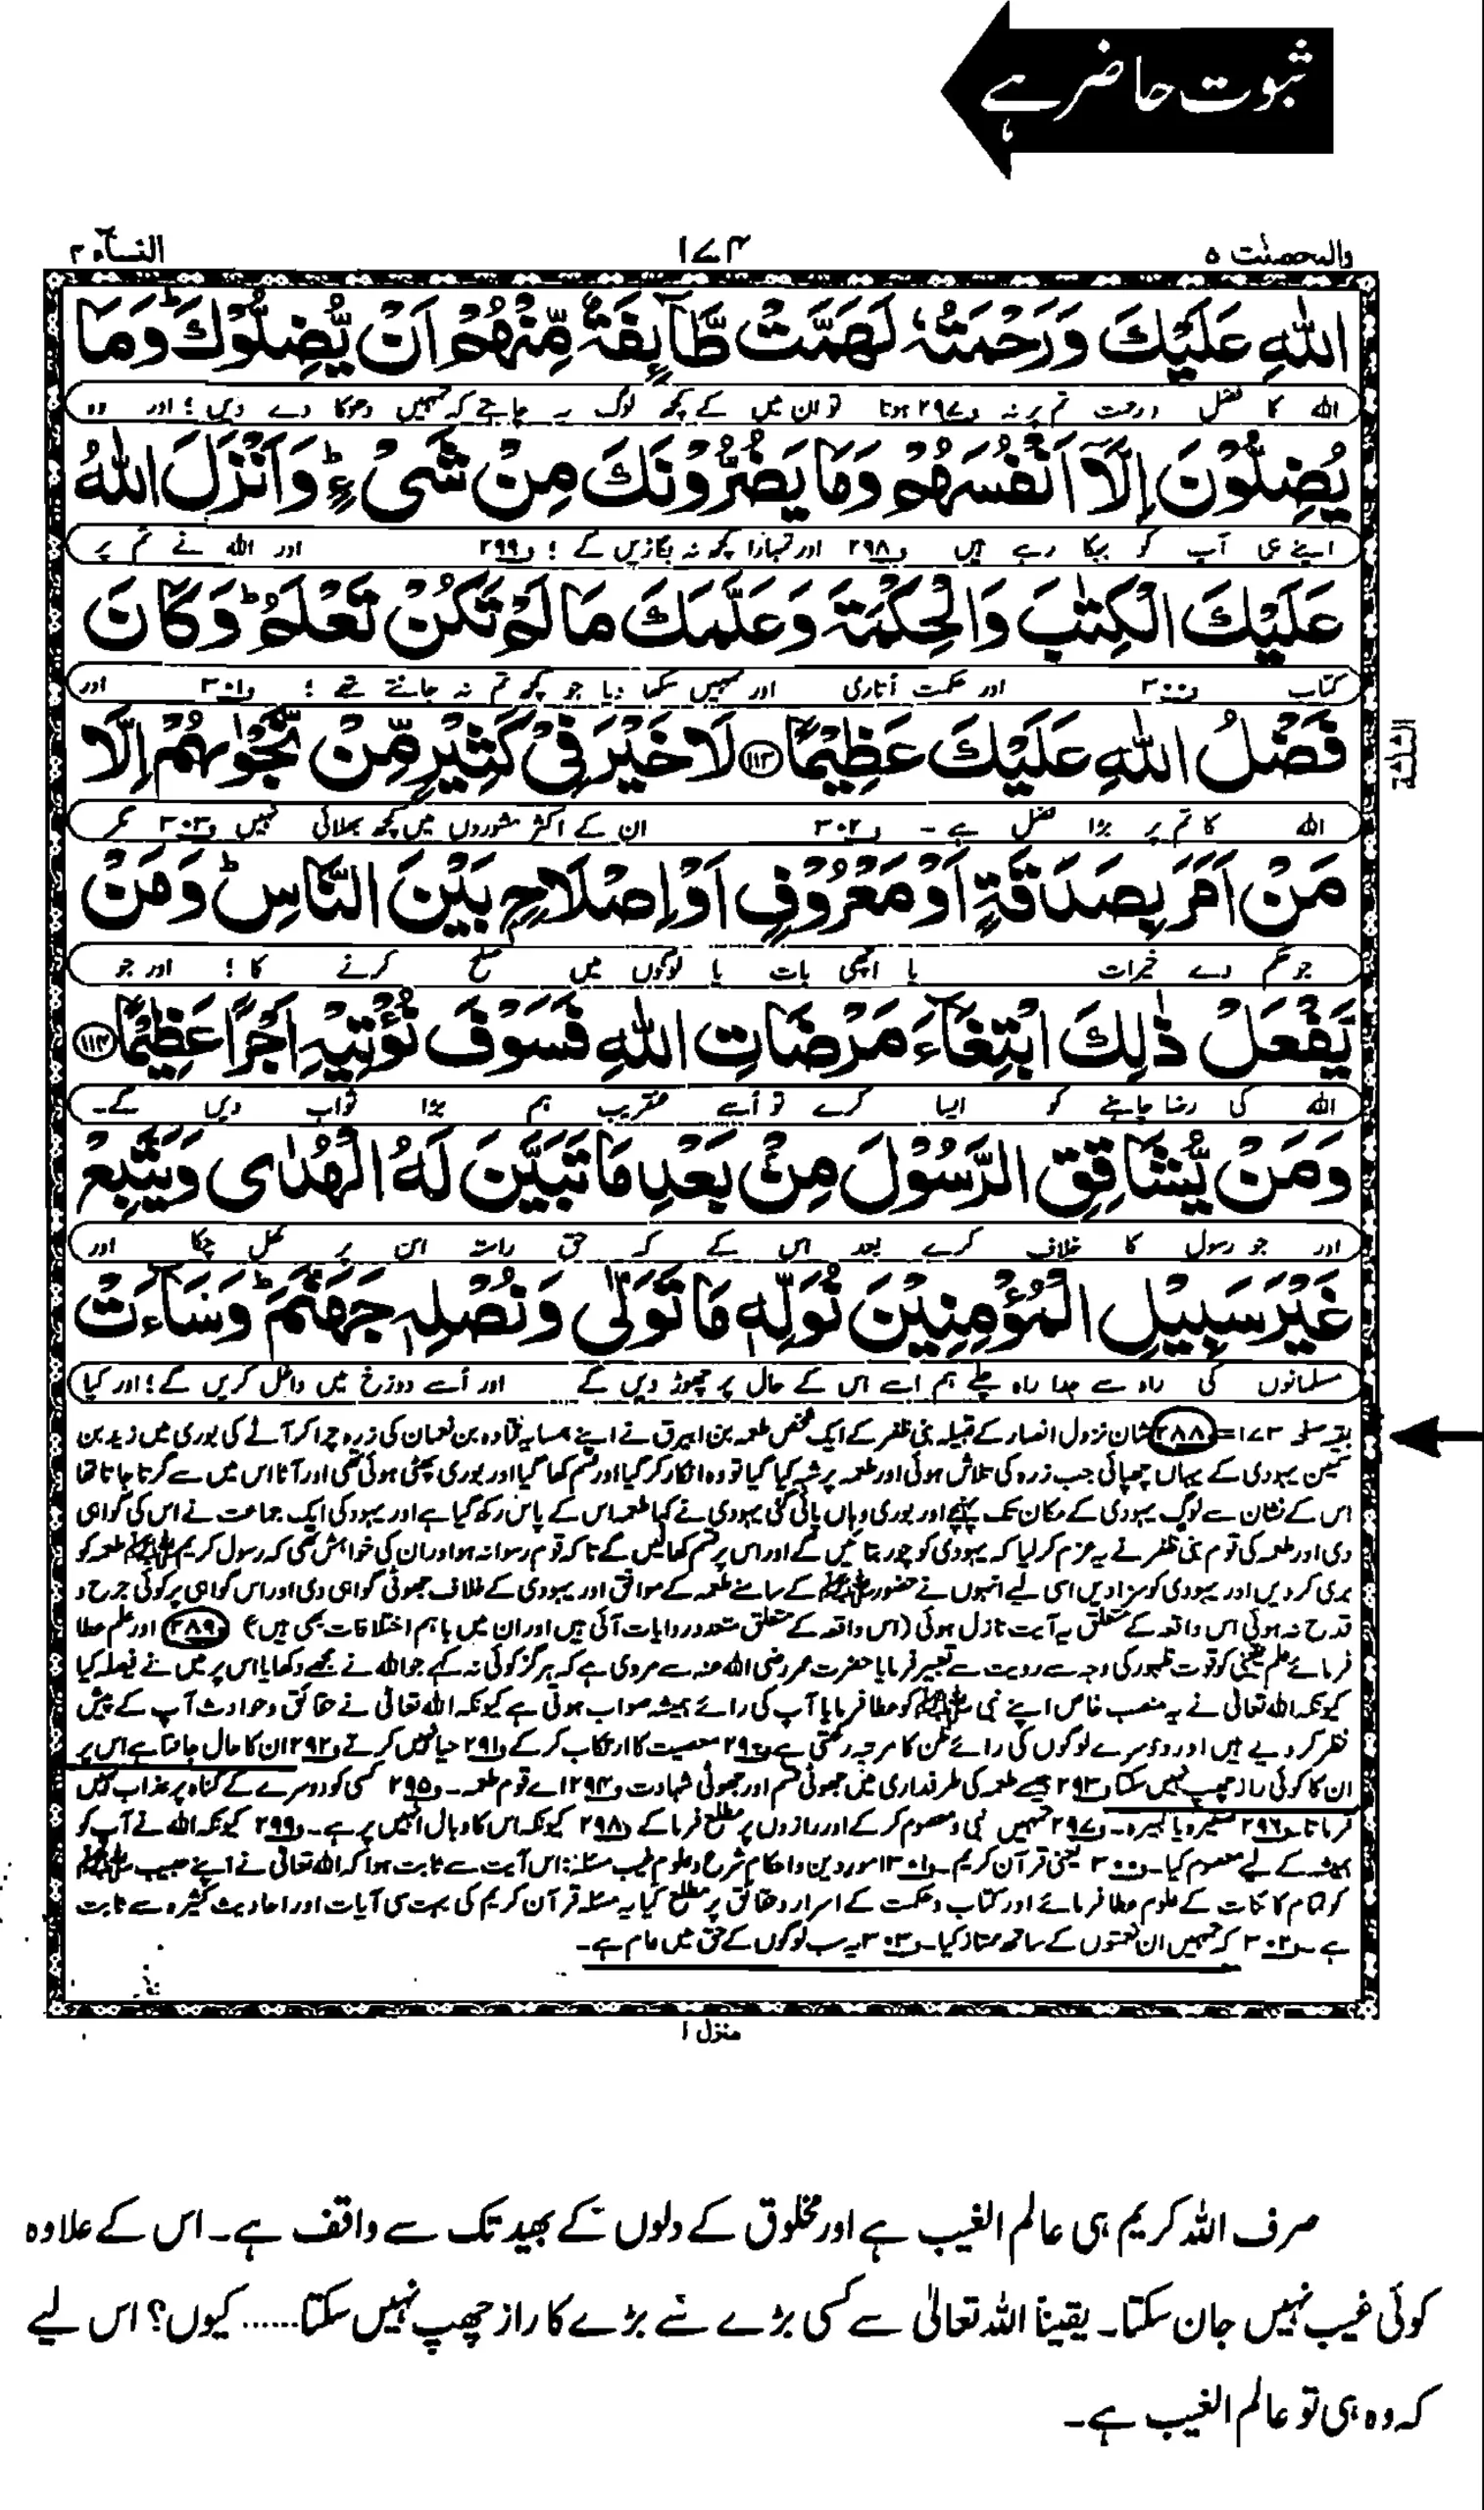 ثبوت حاضر ہے
والمحصنٰت ۵
۱۷۴
النسآء ۴
اللّٰهِ عَلَيْكَ وَرَحْمَتُهٗ لَهَمَّتْ طَّآىِٕفَةٌ مِّنْهُمْ اَنْ يُّضِلُّوْكَ ؕ وَمَا
اللہ کا فضل ورحمت تم پر نہ ف۲۹۷ ہوتا تو ان میں کے کچھ لوگ یہ چاہتے کہ تمہیں دھوکا دے دیں ؛ اور وہ
يُضِلُّوْنَ اِلَّاۤ اَنْفُسَهُمْ وَمَا يَضُرُّوْنَكَ مِنْ شَیْءٍ ؕ وَاَنْزَلَ اللّٰهُ
اپنے ہی آپ کو بہکا رہے ہیں ف۲۹۸ اور تمہارا کچھ نہ بگاڑیں گے ؛ ف۲۹۹ اور اللہ نے تم پر
عَلَيْكَ الْكِتٰبَ وَالْحِكْمَةَ وَعَلَّمَكَ مَا لَمْ تَكُنْ تَعْلَمُ ؕ وَكَانَ
کتاب ف۳۰۰ اور حکمت اتاری اور تمہیں سکھا دیا جو کچھ تم نہ جانتے تھے ؛ ف۳۰۱ اور
فَضْلُ اللّٰهِ عَلَيْكَ عَظِيْمًا ﴿۱۱۳﴾ لَا خَيْرَ فِیْ كَثِيْرٍ مِّنْ نَّجْوٰىهُمْ اِلَّا
اللہ کا تم پر بڑا فضل ہے ۔ ف۳۰۲ ان کے اکثر مشوروں میں کچھ بھلائی نہیں ف۳۰۳ مگر
مَنْ اَمَرَ بِصَدَقَةٍ اَوْ مَعْرُوْفٍ اَوْ اِصْلَاحٍۭ بَيْنَ النَّاسِ ؕ وَمَنْ
جو حکم دے خیرات یا اچھی بات یا لوگوں میں صلح کرنے کا ؛ اور جو
يَّفْعَلْ ذٰلِكَ ابْتِغَآءَ مَرْضَاتِ اللّٰهِ فَسَوْفَ نُؤْتِيْهِ اَجْرًا عَظِيْمًا ﴿۱۱۴﴾
اللہ کی رضا چاہنے کو ایسا کرے تو اُسے عنقریب ہم بڑا ثواب دیں گے۔
وَمَنْ يُّشَاقِقِ الرَّسُوْلَ مِنْۢ بَعْدِ مَا تَبَيَّنَ لَهُ الْهُدٰى وَيَتَّبِعْ
اور جو رسول کا خلاف کرے بعد اس کے کہ حق راستہ اس پر کھل چکا اور
غَيْرَ سَبِيْلِ الْمُؤْمِنِيْنَ نُوَلِّهٖ مَا تَوَلّٰى وَنُصْلِهٖ جَهَنَّمَ ؕ وَسَآءَتْ
مسلمانوں کی راہ سے جدا راہ چلے ہم اسے اس کے حال پر چھوڑ دیں گے اور اُسے دوزخ میں داخل کریں گے ؛ اور کیا
بقیہ صفحہ ۱۷۳= ۲۸۸ شان نزول انصار کے قبیلہ بنی ظفر کے ایک شخص طعمہ بن ابیرق نے اپنے ہمسایہ قتادہ بن نعمان کی زرہ چرا کر آٹے کی بوری میں زید بن
سمین یہودی کے یہاں چھپائی جب زرہ کی تلاش ہوئی اور طعمہ پر شبہ کیا گیا تو وہ انکار کر گیا اور قسم کھا گیا اور بوری پھٹی ہوئی تھی اور آٹا اس میں سے گرتا جاتا تھا
اس کے نشان سے لوگ یہودی کے مکان تک پہنچے اور بوری وہاں پائی گئی یہودی نے کہا طعمہ اس کے پاس رکھ گیا ہے اور یہود کی ایک جماعت نے اس کی گواہی
دی اور طعمہ کی قوم بنی ظفر نے یہ عزم کر لیا کہ یہودی کو چور بتائیں گے اور اس پر قسم کھالیں گے تاکہ قوم رسوا نہ ہو اور ان کی خواہش تھی کہ رسول کریم ﷺ طعمہ کو
بری کر دیں اور یہودی کو سزا دیں اسی لیے انہوں نے حضور ﷺ کے سامنے طعمہ کے موافق اور یہودی کے خلاف جھوٹی گواہی دی اور اس گواہی پر کوئی جرح و
قدح نہ ہوئی اس واقعہ کے متعلق یہ آیت نازل ہوئی (اس واقعہ کے متعلق متعدد روایات آئی ہیں اور ان میں باہم اختلافات بھی ہیں) ۲۸۹ اور علم عطا
فرمائے علم یقینی کو قوت ظہور کی وجہ سے رویت سے تعبیر فرمایا حضرت عمر رضی اللہ عنہ سے مروی ہے کہ ہرگز کوئی نہ کہے جو اللہ نے مجھے دکھایا اس پر میں نے فیصلہ کیا
کیونکہ اللہ تعالیٰ نے یہ منصب خاص اپنے نبی ﷺ کو عطا فرمایا آپ کی رائے ہمیشہ صواب ہوتی ہے کیونکہ اللہ تعالیٰ نے حقائق و حوادث آپ کے پیش
نظر کر دیے ہیں اور دوسرے لوگوں کی رائے ظن کا مرتبہ رکھتی ہے ف۲۹۰ معصیت کا ارتکاب کر کے ف۲۹۱ حیا نہیں کرتے ف۲۹۲ ان کا حال جانتا ہے اس پر
ان کا کوئی راز چھپ نہیں سکتا ف۲۹۳ جیسے طعمہ کی طرفداری میں جھوٹی قسم اور جھوٹی شہادت ف۲۹۴ اے قوم طعمہ۔ ف۲۹۵ کسی کو دوسرے کے گناہ پر عذاب نہیں
فرماتا ف۲۹۶ صغیرہ یا کبیرہ۔ ف۲۹۷ تمہیں نبی و معصوم کر کے اور رازوں پر مطلع فرما کے ف۲۹۸ کیونکہ اس کا وبال انہیں پر ہے۔ ف۲۹۹ کیونکہ اللہ نے آپ کو
ہمیشہ کے لیے معصوم کیا۔ ف۳۰۰ یعنی قرآن کریم۔ ف۳۰۱ امور دین و احکام شرع و علوم غیب مسئلہ: اس آیت سے ثابت ہوا کہ اللہ تعالیٰ نے اپنے حبیب ﷺ
کو تمام کائنات کے علوم عطا فرمائے اور کتاب و حکمت کے اسرار و حقائق پر مطلع کیا یہ مسئلہ قرآن کریم کی بہت سی آیات اور احادیث کثیرہ سے ثابت
ہے ۔ ف۳۰۲ کہ تمہیں ان نعمتوں کے ساتھ ممتاز کیا۔ ف۳۰۳ یہ سب لوگوں کے حق میں عام ہے۔
منزل ۱
صرف اللہ کریم ہی عالم الغیب ہے اور مخلوق کے دلوں کے بھید تک سے واقف ہے۔ اس کے علاوہ
کوئی غیب نہیں جان سکتا۔ یقیناً اللہ تعالیٰ سے کسی بڑے نئے بڑے کا راز چھپ نہیں سکتا...... کیوں؟ اس لیے
کہ وہ ہی تو عالم الغیب ہے۔